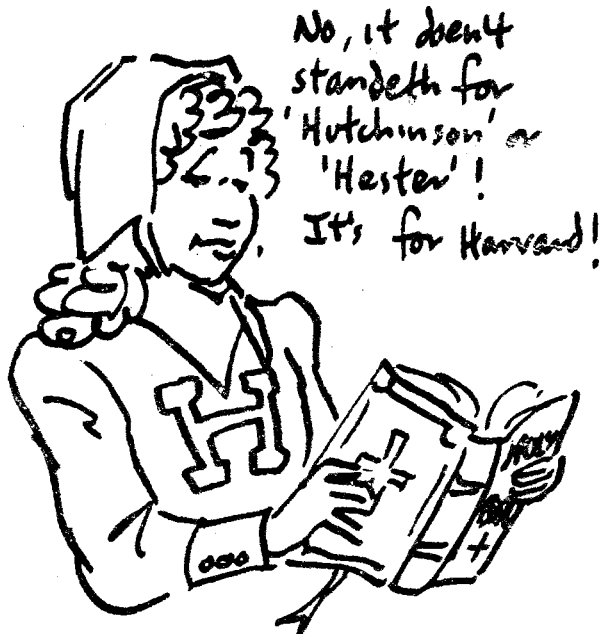 No, it doen't
standeth for
'Hutchinson' or
'Hester'!
It's for Harvard!
H